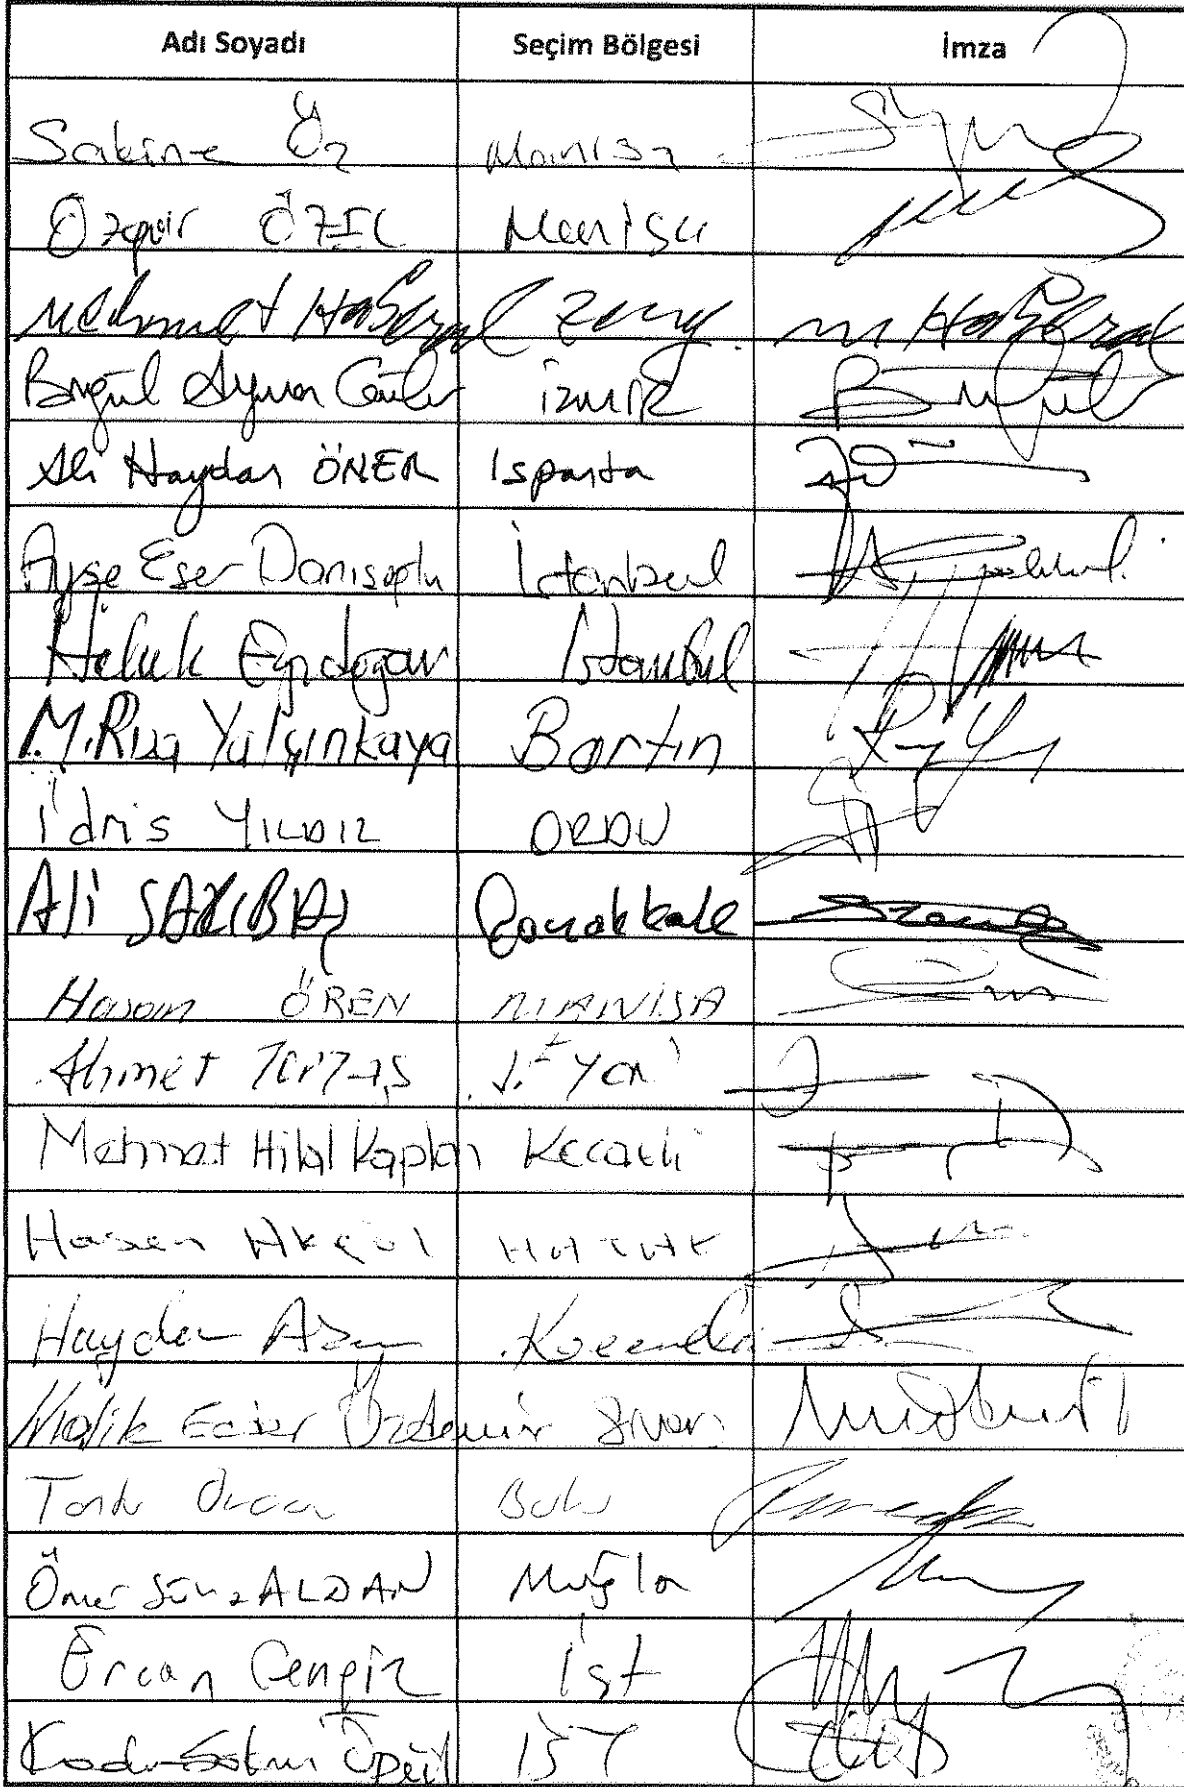 Adı Soyadı Seçim Bölgesi İmza
Sakine Öz Manisa
Özgür ÖZEL Manisa
Mehmet Haberal Zong. M Haberal
Birgül Ayman Güler izmir
Ali Haydar ÖNER Isparta
Ayşe Eser Danışoğlu İstanbul
Haluk Eyidoğan İstanbul
M. Rıza Yalçınkaya Bartın
İdris YILDIZ ORDU
Ali SARIBAŞ Çanakkale
Hasan ÖREN MANİSA
Ahmet Toptaş
Mehmet Hilal Kaplan Kocaeli
Hasan Akgöl HATAY
Haydar Akar Kocaeli
Malik Ecder Özdemir Sivas
Tanju Özcan Bolu
Ömer Süha ALDAN Muğla
Ercan Cengiz İst
Kadir Öğüt İST